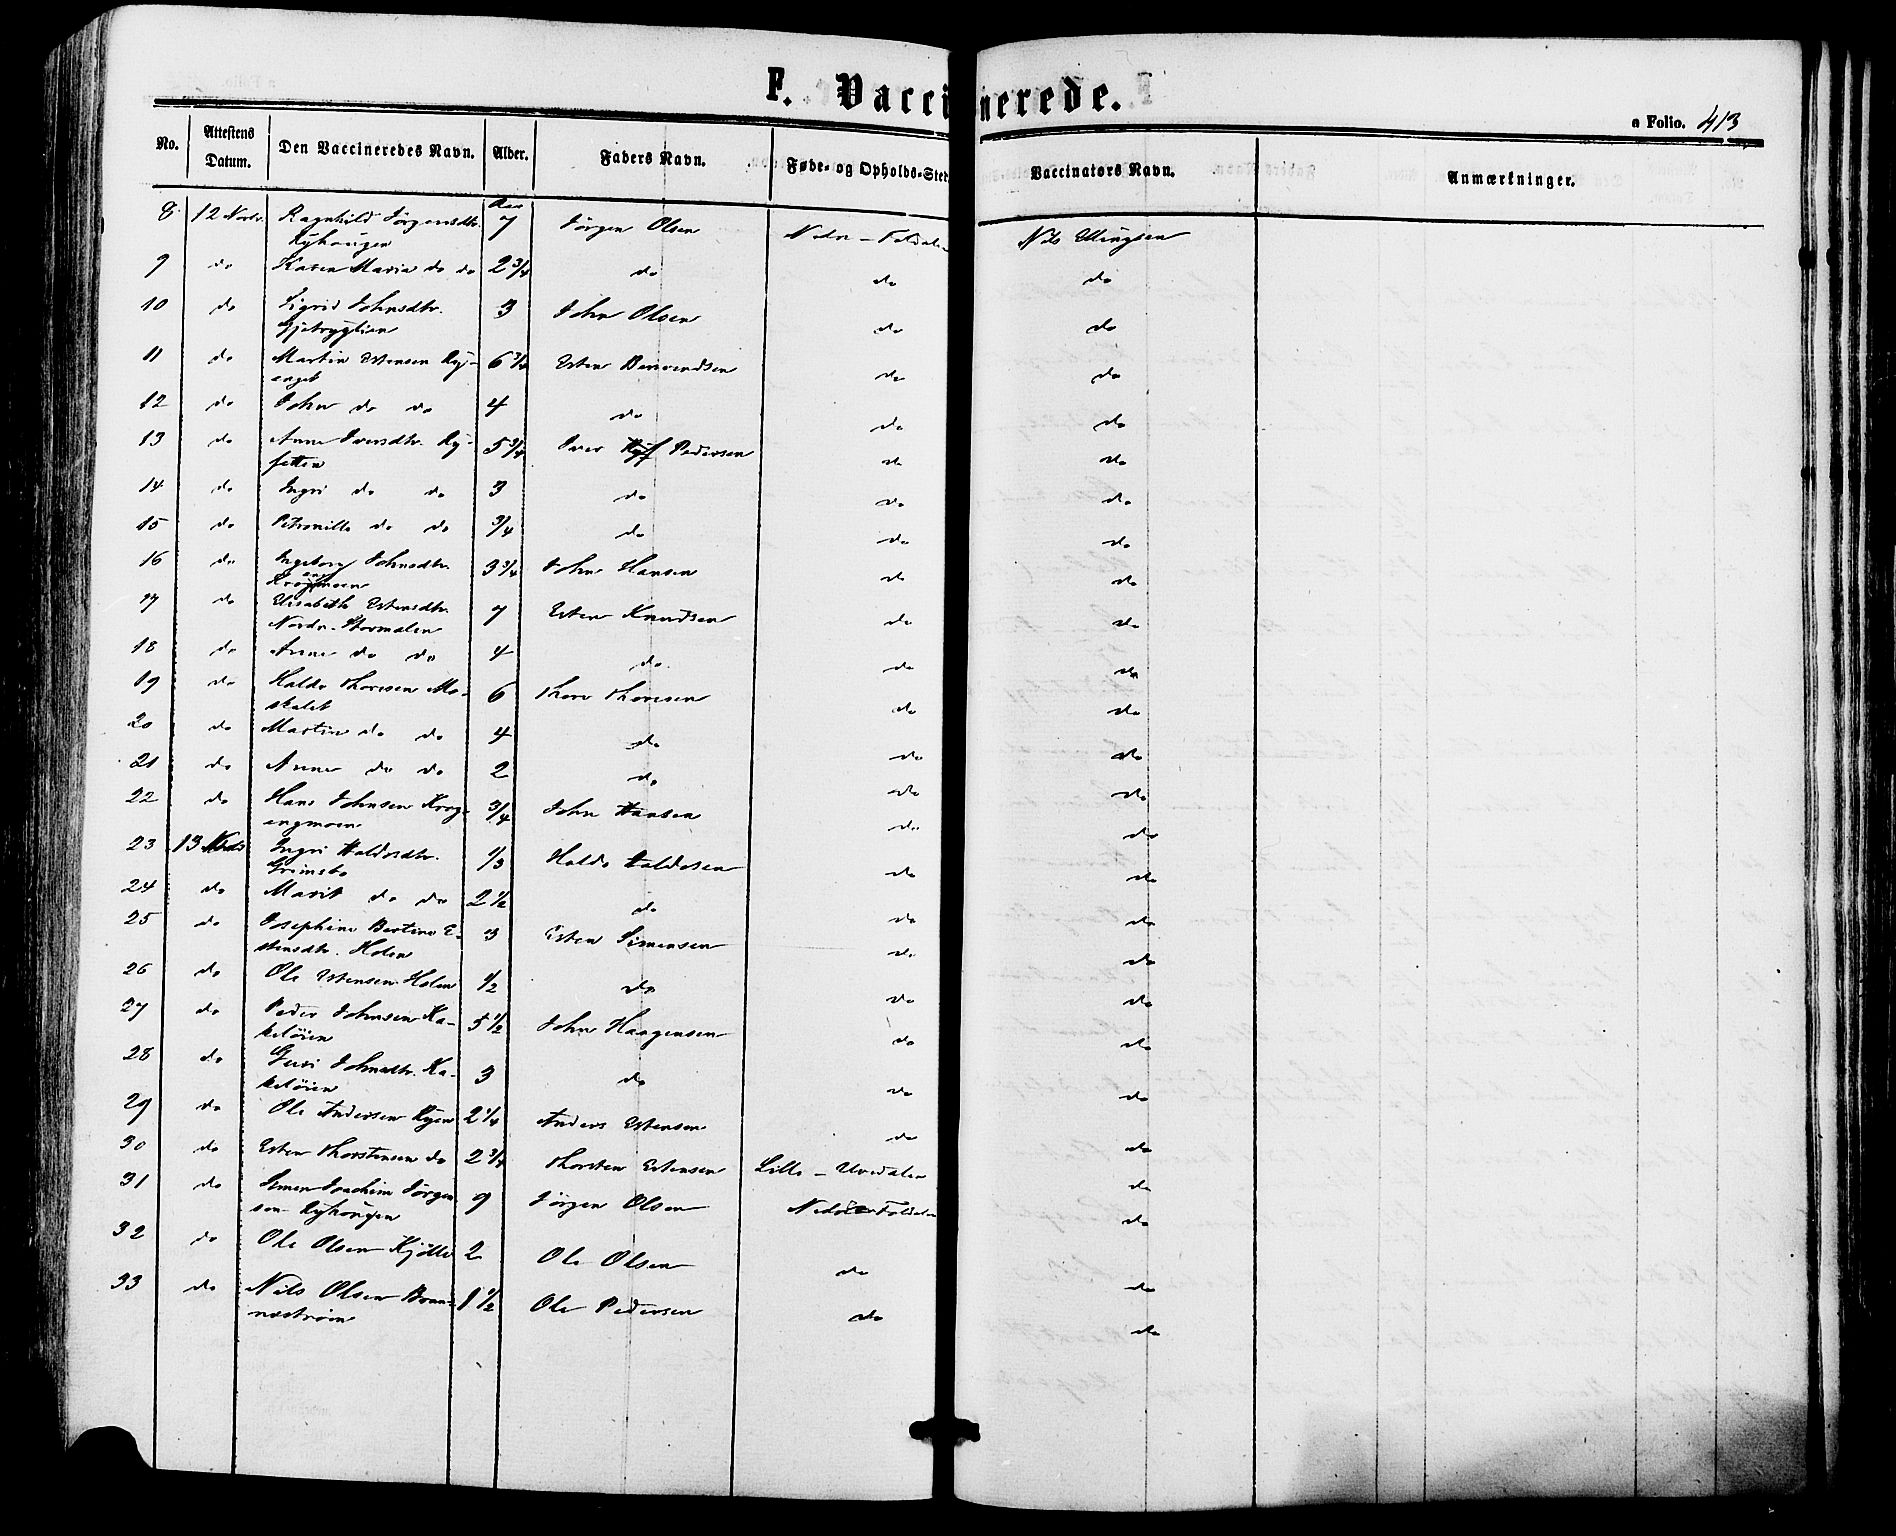 F. Vaccinerede.
a Folio. 413
No. Attestens Datum. Den Vaccineredes Navn. Alder. Faders Navn. Føde- og Opholds-Sted Vaccinators Navn. Anmærkninger.
Aar
8 12 Novbr. Ragnhild Jørgensdtr. 7 Jörgen Olsen Nedre-Foldalen Nils Ellingsen
Ryhaugen
9 do Karen Maria do do 2 3/4 do do do
10 do Sigrid Johnsdtr. 3 John Olsen do do
11 do Martin Estensen Ry- 6 3/4 Esten do do
enget
12 do John do do 4 do do do
13 do Anne Iversdtr. Ry- 5 3/4 Iver Pedersen do do
14 do Ingri do do 3 do do do
15 do Petronille do do 3/4 do do do
16 do Ingeborg Johnsdtr. 3 3/4 John Hansen do do
17 do Elisabeth Estensdtr. 7 Esten Knudsen do do
Nordre-Stormælen
18 do Anne do do 4 do do do
19 do Haldo Thoresen Mo- 6 Thore Thoresen do do
skalet
20 do Martin do do 4 do do do
21 do Anne do do 2 do do do
22 do Hans Johnsen Krog- 3/4 John Hansen do do
engmoen
23 13 Ingri Haldosdtr. 1/3 Haldo Haldosen do do
Grimsbo
24 do Marit do do 2 1/2 do do do
25 do Josephine Bertine E- 3 Esten Simensen do do
stensdtr. Holen
26 do Ole Estensen Holen 1/2 do do do
27 do Peder Johnsen Ka- 5 1/2 John Haagensen do do
28 do Guri Johnsdtr. Ka- 3 do do do
29 do Ole Andersen Ryen 2 1/4 Anders Estensen do do
30 do Esten Thorstensen do 2 3/4 Thorsten Estensen Lille-Elvedalen do
31 do Simen Joachim Jörgen- 9 Jörgen Olsen Nedre Foldalen do
sen Ryhaugen
32 do Ole Olsen Kjölle 2 Ole Olsen do do
33 do Nils Olsen Bran- 1 1/2 Ole Pedersen do do